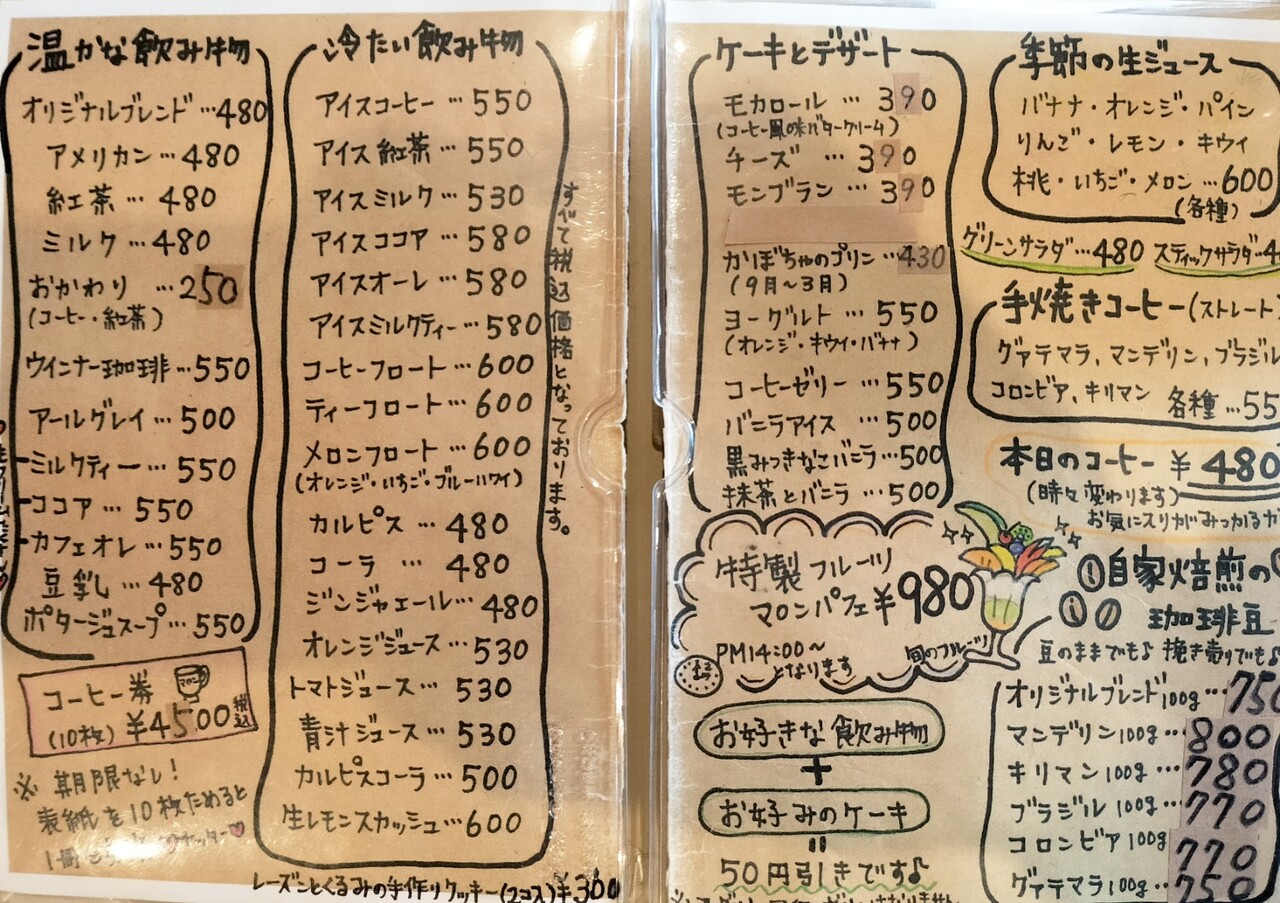 温かな飲み物
オリジナルブレンド…480
アメリカン…480
紅茶…480
ミルク…480
おかわり…250
(コーヒー・紅茶)
ウインナー珈琲…550
アールグレイ…500
ミルクティー…550
ココア…550
カフェオレ…550
豆乳…480
ポタージュスープ…550
コーヒー券
(10枚)¥4500税込
※期限なし!
表紙を10枚ためると
1冊
冷たい飲み物
アイスコーヒー…550
アイス紅茶…550
アイスミルク…530
アイスココア…580
アイスオーレ…580
アイスミルクティー…580
コーヒーフロート…600
ティーフロート…600
メロンフロート…600
(オレンジ・いちご・ブルーハワイ)
カルピス…480
コーラ…480
ジンジャエール…480
オレンジジュース…530
トマトジュース…530
青汁ジュース…530
カルピスコーラ…500
生レモンスカッシュ…600
すべて税込価格となっております。
レーズンとくるみの手作りクッキー(2コ入)¥300
ケーキとデザート
モカロール…390
(コーヒー風味バタークリーム)
チーズ…390
モンブラン…390
かぼちゃのプリン…430
(9月〜3月)
ヨーグルト…550
(オレンジ・キウイ・バナナ)
コーヒーゼリー…550
バニラアイス…500
黒みつきなこバニラ…500
抹茶とバニラ…500
特製フルーツ
マロンパフェ¥980
PM14:00〜
となります
旬のフルーツ
お好きな飲み物
+
お好みのケーキ
=
50円引きです♪
季節の生ジュース
バナナ・オレンジ・パイン
りんご・レモン・キウイ
桃・いちご・メロン…600
(各種)
グリーンサラダ…480 スティックサラダ…4
手焼きコーヒー(ストレート
グァテマラ,マンデリン,ブラジル
コロンビア,キリマン 各種…55
本日のコーヒー ¥480
(時々変わります)
お気に入りがみつかるか
自家焙煎の
珈琲豆
豆のままでも♪ 挽き売りでも♪
オリジナルブレンド100g…750
マンデリン100g…800
キリマン100g…780
ブラジル100g…770
コロンビア100g 770
グァテマラ100g…750